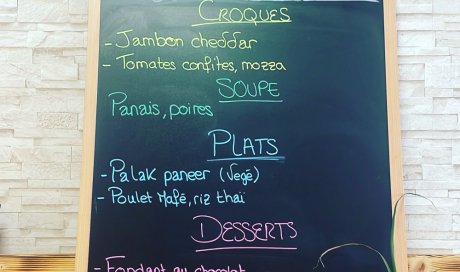 CROQUES
- Jambon cheddar
- Tomates confites, mozza
SOUPE
Panais, poires
PLATS
- Palak paneer (Vegé)
- Poulet Mafé, riz thaï
DESSERTS
- Fondant au chocolat